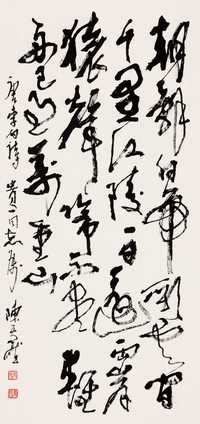 朝辭白帝彩雲間
千里江陵一日還兩岸
猿聲啼不住輕
舟已過萬重山
唐李白詩 貴一同志屬 陳天然